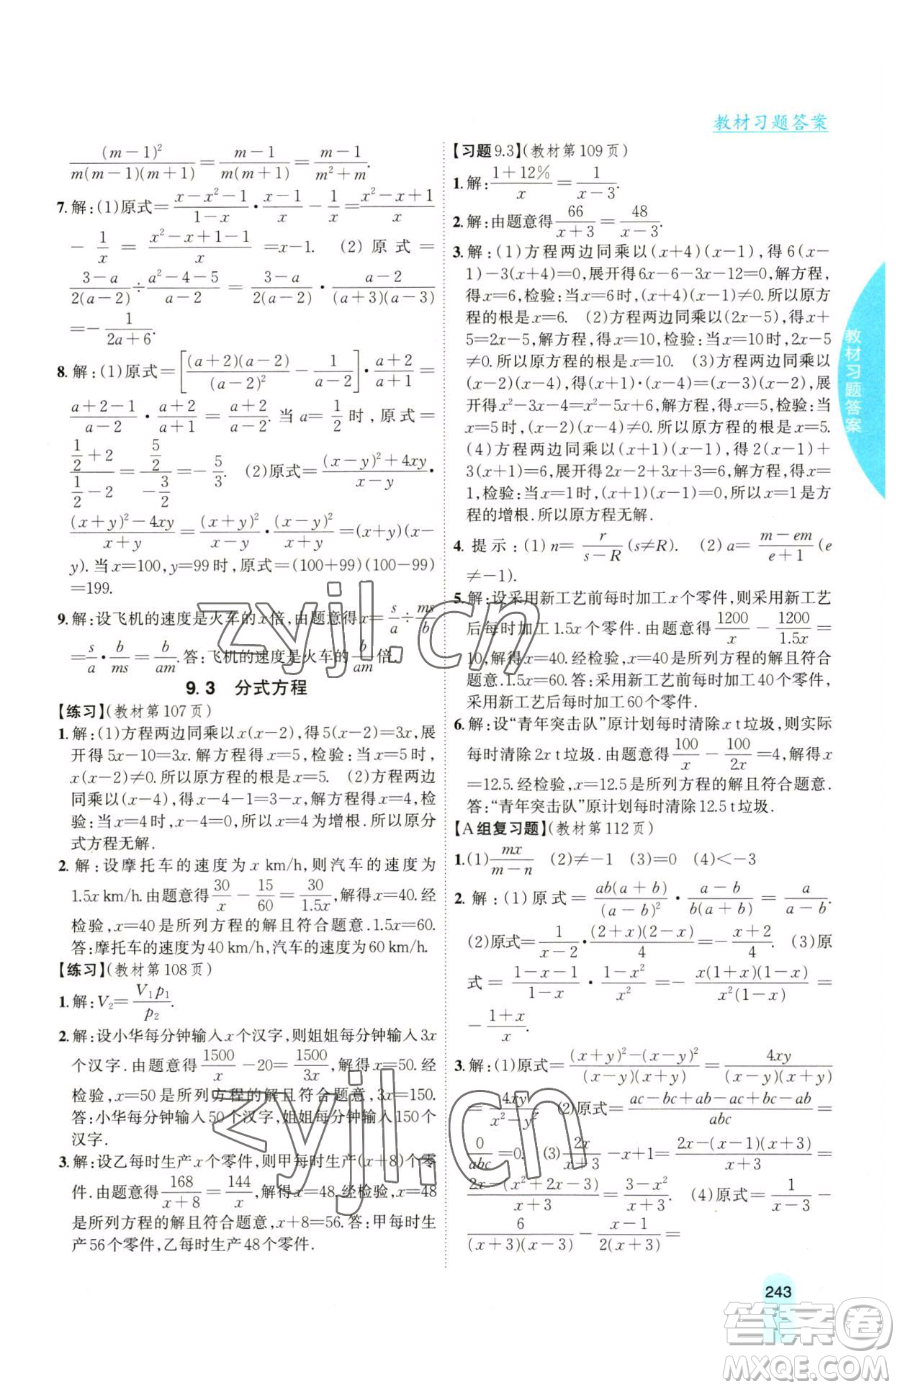 教材习题答案
\frac{(m-1)^2}{m(m-1)(m+1)}=\frac{m-1}{m(m+1)}=\frac{m-1}{m^2+m}.
7.解:(1)原式=\frac{x-x^2-1}{1-x}·\frac{x-1}{x}-\frac{1}{x}=\frac{x^2-x+1}{x}
-\frac{1}{x}=\frac{x^2-x+1-1}{x}=x-1. (2)原式=
\frac{3-a}{2(a-2)}÷\frac{a^2-4-5}{a-2}=\frac{3-a}{2(a-2)}·\frac{a-2}{(a+3)(a-3)}
=-\frac{1}{2a+6}.
8.解:(1)原式=[\frac{(a+2)(a-2)}{(a-2)^2}+\frac{1}{a-2}]·\frac{a+2}{a+1}=
\frac{a+2+1}{a-2}·\frac{a+2}{a+1}=\frac{a+2}{a-2}.当a=\frac{1}{2}时,原式=
\frac{\frac{1}{2}+2}{\frac{1}{2}-2}=\frac{\frac{5}{2}}{-\frac{3}{2}}=-\frac{5}{3}. (2)原式=\frac{(x-y)^2+4xy}{x-y}·
\frac{(x+y)^2-4xy}{x+y}=\frac{(x+y)^2}{x-y}·\frac{(x-y)^2}{x+y}=(x+y)(x-
y).当x=100,y=99时,原式=(100+99)(100-99)
=199.
9.解:设飞机的速度是火车的x倍,由题意得x=\frac{s}{a}÷\frac{ms}{b}
=\frac{s}{a}·\frac{b}{ms}=\frac{b}{am}.答:飞机的速度是火车的\frac{b}{am}倍.
9.3 分式方程
【练习】(教材第107页)
1.解:(1)方程两边同乘以x(x-2),得5(x-2)=3x,展
开得5x-10=3x.解方程得x=5,检验:当x=5时,
x(x-2)≠0.所以原方程的根是x=5. (2)方程两边
同乘以(x-4),得3+x+(x-4)=-1,解方程得x=-4,
检验:当x=4时,x-4=0.所以x=4是增根,所以原分
式方程无解.
2.解:设摩托车的速度为x km/h,则汽车的速度为
1.5x km/h.由题意得\frac{30}{x}-\frac{15}{60}=\frac{30}{1.5x},解得x=40.经
检验,x=40是所列方程的解且符合题意,1.5x=60.
答:摩托车的速度为40 km/h,汽车的速度为60 km/h.
【练习】(教材第108页)
1.解:V_2=\frac{V_1p_1}{p_2}.
2.解:设小华每分钟输入x个汉字,则姐姐每分钟输入3x
个汉字.由题意得\frac{1500}{x}-20=\frac{1500}{3x},解得x=50.经
检验,x=50是所列方程的解且符合题意,3x=150.
答:小华每分钟输入50个汉字,姐姐每分钟输入150个
汉字.
3.解:设乙每时生产x个零件,则甲每时生产(x+8)个零
件.由题意得\frac{168}{x+8}=\frac{144}{x},解得x=48.经检验,x=48
是所列方程的解且符合题意,x+8=56.答:甲每时生
产56个零件,乙每时生产48个零件.
【习题9.3】(教材第109页)
1.解:\frac{1+12%}{x}=\frac{1}{x-3}.
2.解:由题意得\frac{66}{x+3}=\frac{48}{x-3}.
3.解:(1)方程两边同乘以(x+4)(x-1),得6(x-
1)=5(x+4)=0,展开得6x-6-5x-20=0,解方程,
得x=6,检验:当x=6时,(x+4)(x-1)≠0.所以原方
程的根是x=6. (2)方程两边同乘以(2x-5),得x-
5=2x-5,解方程,得x=10,检验:当x=10时,2x-5
≠0.所以原方程的根是x=10. (3)方程两边同乘以
(x-2)(x-4),得(x-1)·(x-4)=2+(x-2)(x-4),
展开得x^2-3x-4=2+x^2-6x+8,解方程得x=
检验:当x=时,(x-2)(x-4)≠0.所以原方程的根是x=
(4)方程两边同乘以(x+1)(x-1),得2(x-1)+
3(x+1)=6,展开得2x-2+3x+3=6,解方程得x=1,
检验:当x=1时,(x+1)(x-1)=0,所以x=1是原方
程的增根.所以原方程无解.
4.提示:(1)n=\frac{r}{s-R}(s≠R). (2)a=\frac{m-em}{e+1}(e
≠-1).
5.解:设采用新工艺前每时加工x个零件,则采用新工艺
后每时加工1.5x个零件.由题意得\frac{1200}{x}-\frac{1200}{1.5x}=
10,解得x=40.经检验,x=40是所列方程的解且符合
题意,1.5x=60.答:采用新工艺前每时加工40个零件,
采用新工艺后每时加工60个零件.
6.解:设“青年突击队”原计划每时清除x t垃圾,则实际
每时清除2x t垃圾.由题意得\frac{100}{x}-\frac{100}{2x}=4,解得x
=12.5.经检验,x=12.5是所列方程的解且符合题意.
答:“青年突击队”原计划每时清除12.5 t垃圾.
【A组复习题】(教材第112页)
1.(1)\frac{mx}{m-n} (2)≠-1 (3)0 (4)<-3
2.解:(1)原式=\frac{ab(a+b)}{(a-b)^2}·\frac{a-b}{b(a+b)}=\frac{a}{a-b}.
(2)原式=\frac{1}{x-2}·\frac{(2+x)(2-x)}{4}=-\frac{x+2}{4}. (3)原
式=\frac{1-x-1}{1-x}÷\frac{x^2}{1-x^2}=-\frac{x(1+x)(1-x)}{x^2(1-x)}=
-\frac{1+x}{x}.
3.解:(1)原式=\frac{(x+y)^2-(x-y)^2}{(x-y)(x+y)}=\frac{4xy}{(x-y)(x+y)}
=\frac{4xy}{x^2-y^2}. (2)原式=\frac{ac-bc+ab-ac+bc-ab}{abc}=
\frac{0}{abc}=0. (3)\frac{2x}{x+3}-x+1=\frac{2x-(x-1)(x+3)}{x+3}=
\frac{2x-(x^2+2x-3)}{x+3}=\frac{3-x^2}{x+3}. (4)原式=\frac{1}{x-3}-
\frac{6}{(x+3)(x-3)}=\frac{x+3-6}{(x+3)(x-3)}=\frac{1}{x+3}.
教材习题答案
243
zyjl.cn
zyjl.cn
答案圈
MXQE.COM